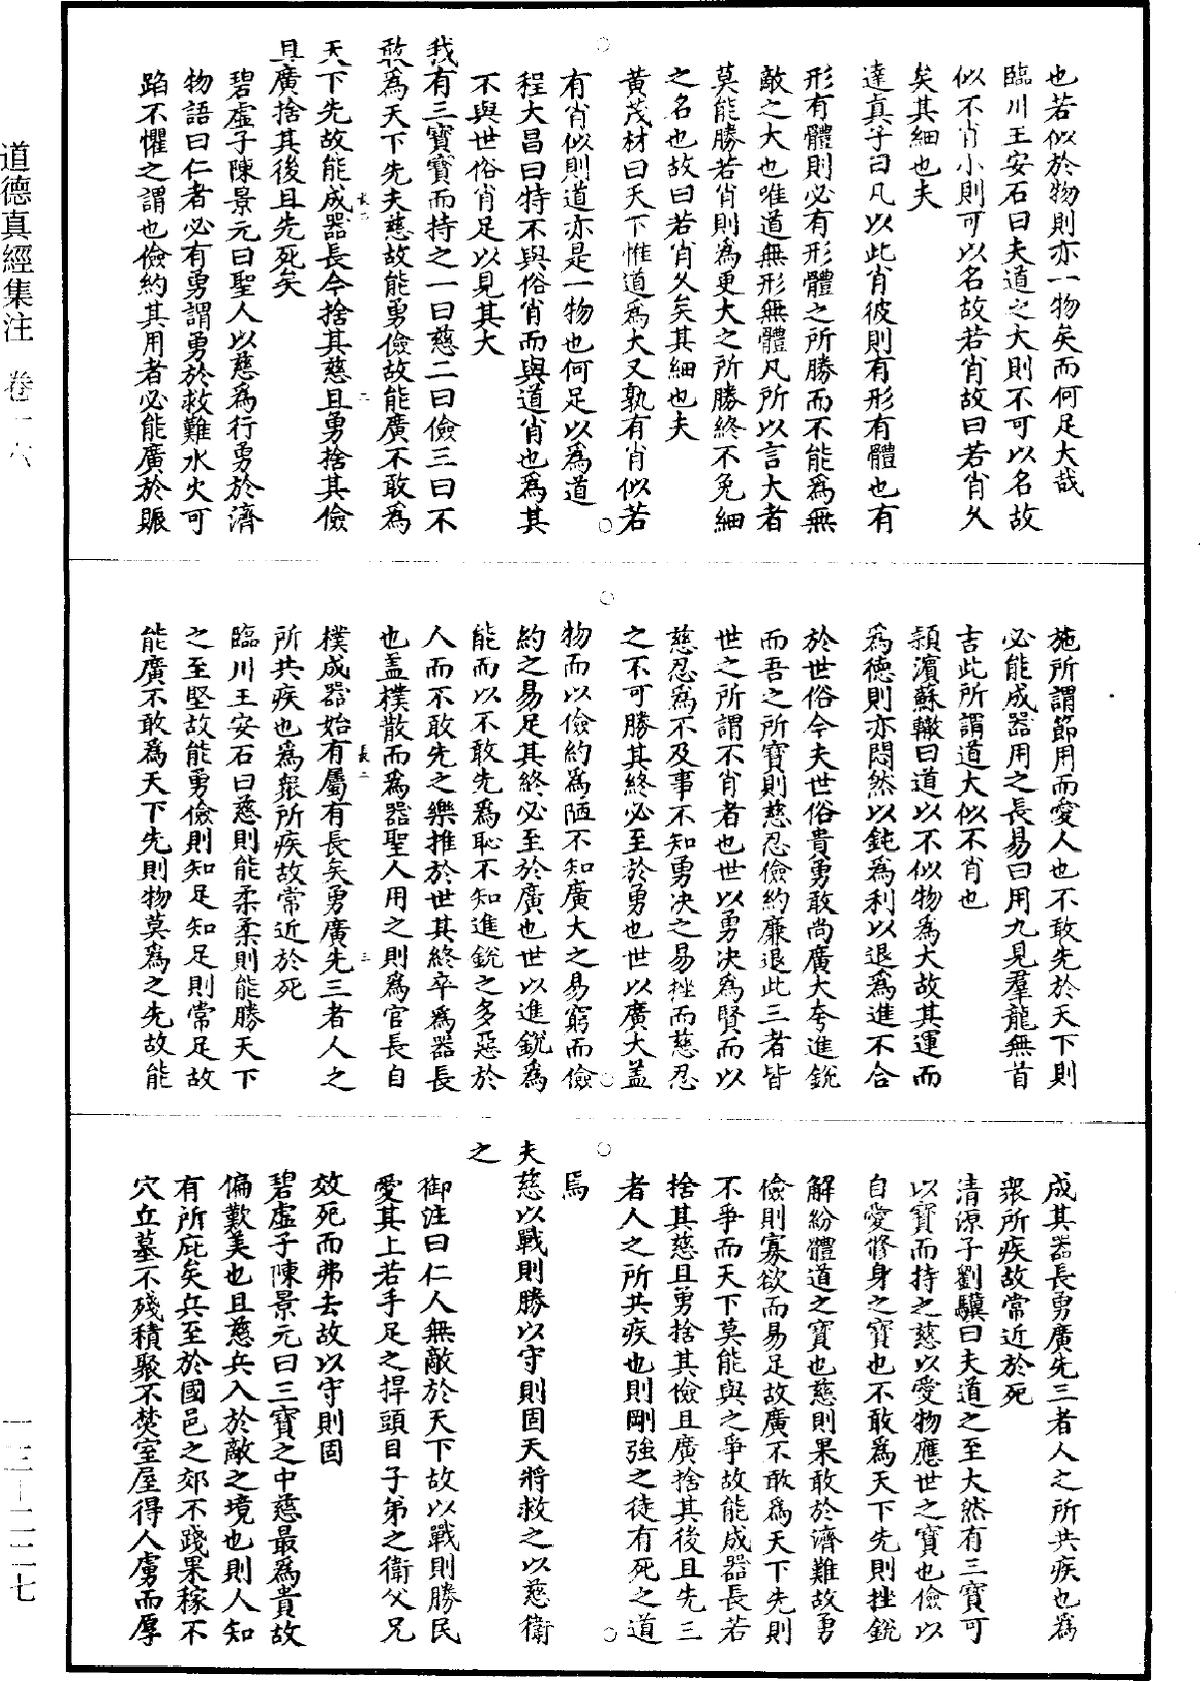 也若似於物則亦一物矣而何足大哉
臨川王安石曰夫道之大則不可以名故
似不肖小則可以名故若肖故曰若肖久
矣其細也夫
達真子曰凡以此肖彼則有形有體也有
形有體則必有形體之所勝而不能為無
敵之大也唯道無形無體凡所以言大者
莫能勝若肖則為更大之所勝終不免細
之名也故曰若肖久矣其細也夫
黃茂材曰天下惟道為大又孰有肖似若
有肖似則道亦是一物也何足以為道
程大昌曰特不與俗肖而與道肖也為其
不與世俗肖足以見其大
我有三寶寶而持之一曰慈二曰儉三曰不
敢為天下先夫慈故能勇儉故能廣不敢為
天下先故能成器長今捨其慈且勇捨其儉
且廣捨其後且先死矣
碧虛子陳景元曰聖人以慈為行勇於濟
物語曰仁者必有勇謂勇於救難水火可
蹈不懼之謂也儉約其用者必能廣於賑
施所謂節用而愛人也不敢先於天下則
必能成器用之長易曰用九見羣龍無首
吉此所謂道大似不肖也
潁濱蘇轍曰道以不似物為大故其運而
為德則亦悶然以鈍為利以退為進不合
於世俗今夫世俗貴勇敢尚廣大夸進銳
而吾之所寶則慈忍儉約廉退此三者皆
世之所謂不肖者也世以勇決為賢而以
慈忍為不及事不知勇決之易挫而慈忍
之不可勝其終必至於勇也世以廣大蓋
物而以儉約為陋不知廣大之易窮而儉
約之易足其終必至於廣也世以進銳為
能而以不敢先為恥不知進銳之多惡於
人而不敢先之樂推於世其終卒為器長
也盖樸散而為器聖人用之則為官長自
樸成器始有屬有長矣勇廣先三者人之
所共疾也為眾所疾故常近於死
臨川王安石曰慈則能柔柔則能勝天下
之至堅故能勇儉則知足知足則常足故
能廣不敢為天下先則物莫為之先故能
成其器長勇廣先三者人之所共疾也為
眾所疾故常近於死
清源子劉驥曰夫道之至大然有三寶可
以寶而持之慈以愛物應世之寶也儉以
自愛脩身之寶也不敢為天下先則挫銳
解紛體道之寶也慈則果敢於濟難故勇
儉則寡欲而易足故廣不敢為天下先則
不爭而天下莫能與之爭故能成器長若
捨其慈且勇捨其儉且廣捨其後且先三
者人之所共疾也則剛強之徒有死之道
焉
夫慈以戰則勝以守則固天將救之以慈衛
之
御注曰仁人無敵於天下故以戰則勝民
愛其上若手足之捍頭目子弟之衛父兄
效死而弗去故以守則固
碧虛子陳景元曰三寶之中慈最為貴故
偏歎美也且慈兵入於敵之境也則人知
有所庇矣兵至於國邑之郊不踐果稼不
穴丘墓不殘積聚不焚室屋得人虜而厚
道德真經集注 卷十六
一三—二二七